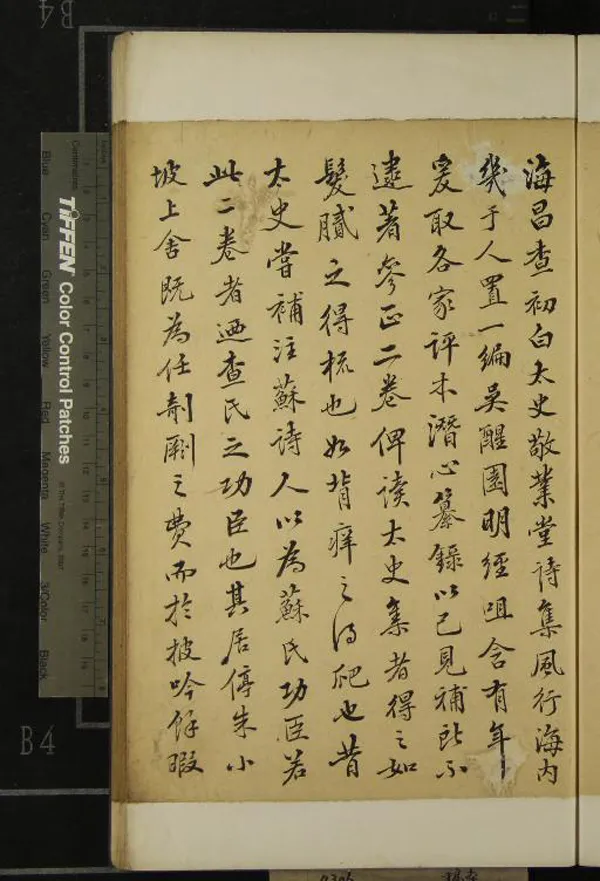 海昌查初白太史敬業堂詩集風行海内
幾于人置一編吳醒園明經咀含有年
爰取各家評本潛心纂錄以己見補所不
逮著參正二卷俾讀太史集者得之如
髮膩之得梳也如背痒之得爬也昔
太史嘗補注蘇詩人以為蘇氏功臣若
此二卷者迺查氏之功臣也其居停朱小
坡上舍既為任剞劂之費而於披吟餘暇
B4
TIFFEN Color Control Patches
Blue Cyan Green Yellow Red Magenta White 3/Color Black
B4